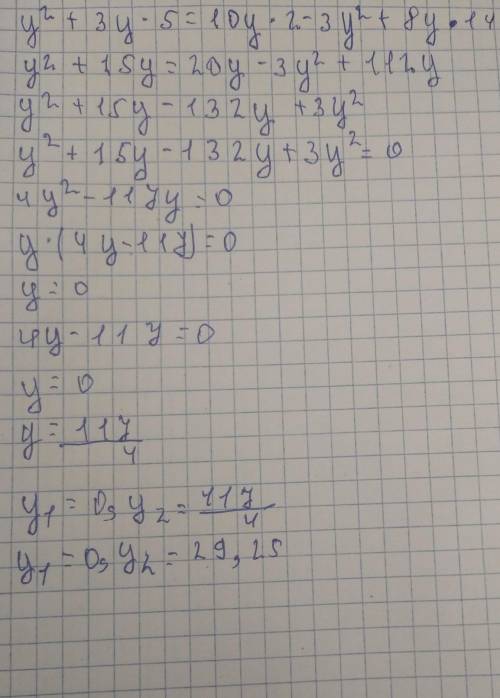 y² + 3y · 5 = 10y · 2 - 3y² + 8y · 14
y² + 15y = 20y - 3y² + 112y
y² + 15y - 132y + 3y²
y² + 15y - 132y + 3y² = 0
4y² - 117y = 0
y · (4y - 117) = 0
y = 0
4y - 117 = 0
y = 0
y = 117/4
y₁ = 0, y₂ = 117/4
y₁ = 0, y₂ = 29,25